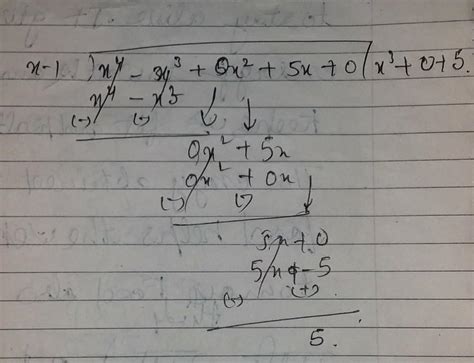 x-1 ) x⁴ - x³ + 0x² + 5x + 0 ( x³ + 0 + 5.
x⁴ - x³
(-) (-)
0x² + 5x
0x² + 0x
(-) (-)
5x + 0
5x - 5
(-) (+)
5.